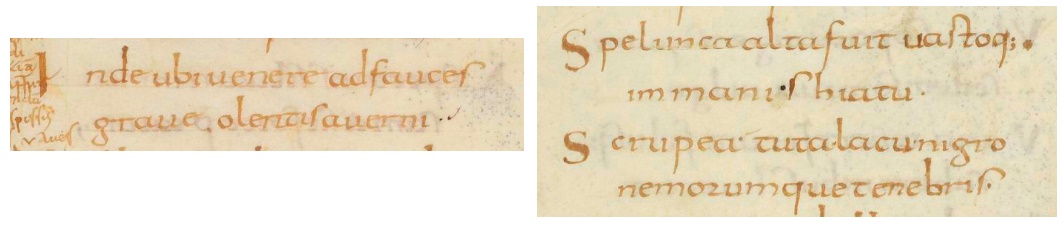 Inde ubi uenere ad fauces
graue olentis auerni
Spelunca alta fuit uastoq;
immanis hiatu
Scrupea tuta lacu nigro
nemorumque tenebris.